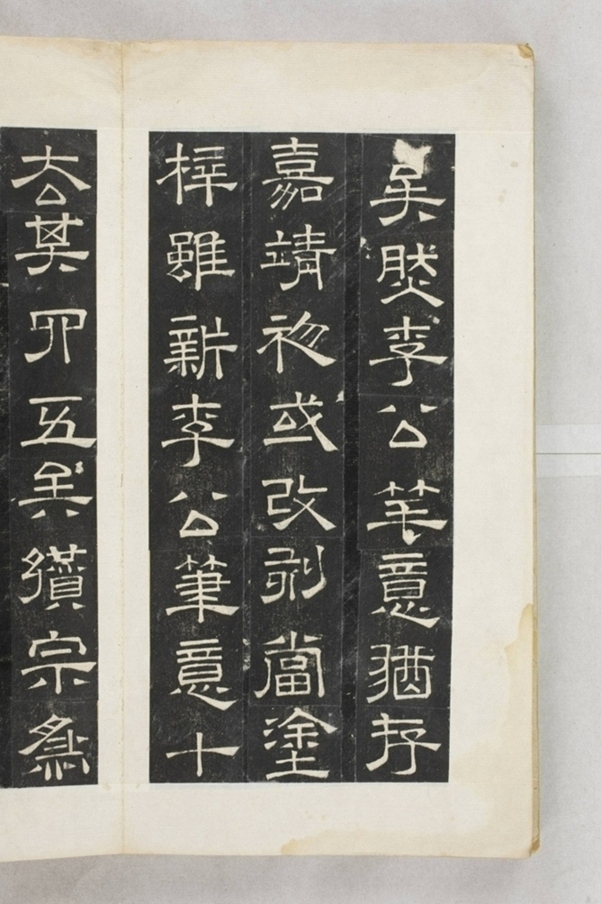 矣然李公筆意猶存
嘉靖初或改刻當塗
梓雖新李公筆意十
去其四五矣纘宗